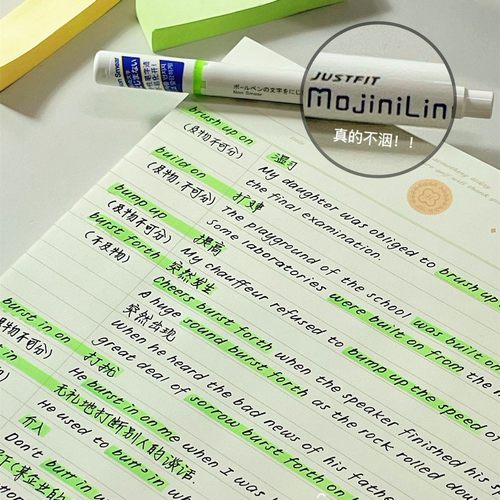 JUSTFIT
MojiniLin
真的不洇！！
ボールペンの文字をにじ
Non Smear
brush up on
(及物不可分)
温习
My daughter was obliged to brush up
the final examination.
build on
(及物,不可分)
打建
The playground of the school was built on
Some laboratories were built on from the
bump up
(及物不可分)
提高
My chauffeur refused to bump up the speed on
burst forth
(不及物)
突然发生
Cheers burst forth when the speaker finished his
突然出现
A huge sound burst forth as the rock rolled down
When he heard the bad news of his father
great deal of sorrow burst forth
burst in on
及物不可分)
打扰
He burst in on me when I was
无礼地打断别人的谈话
He used to burst in when
介入
Don't burst in